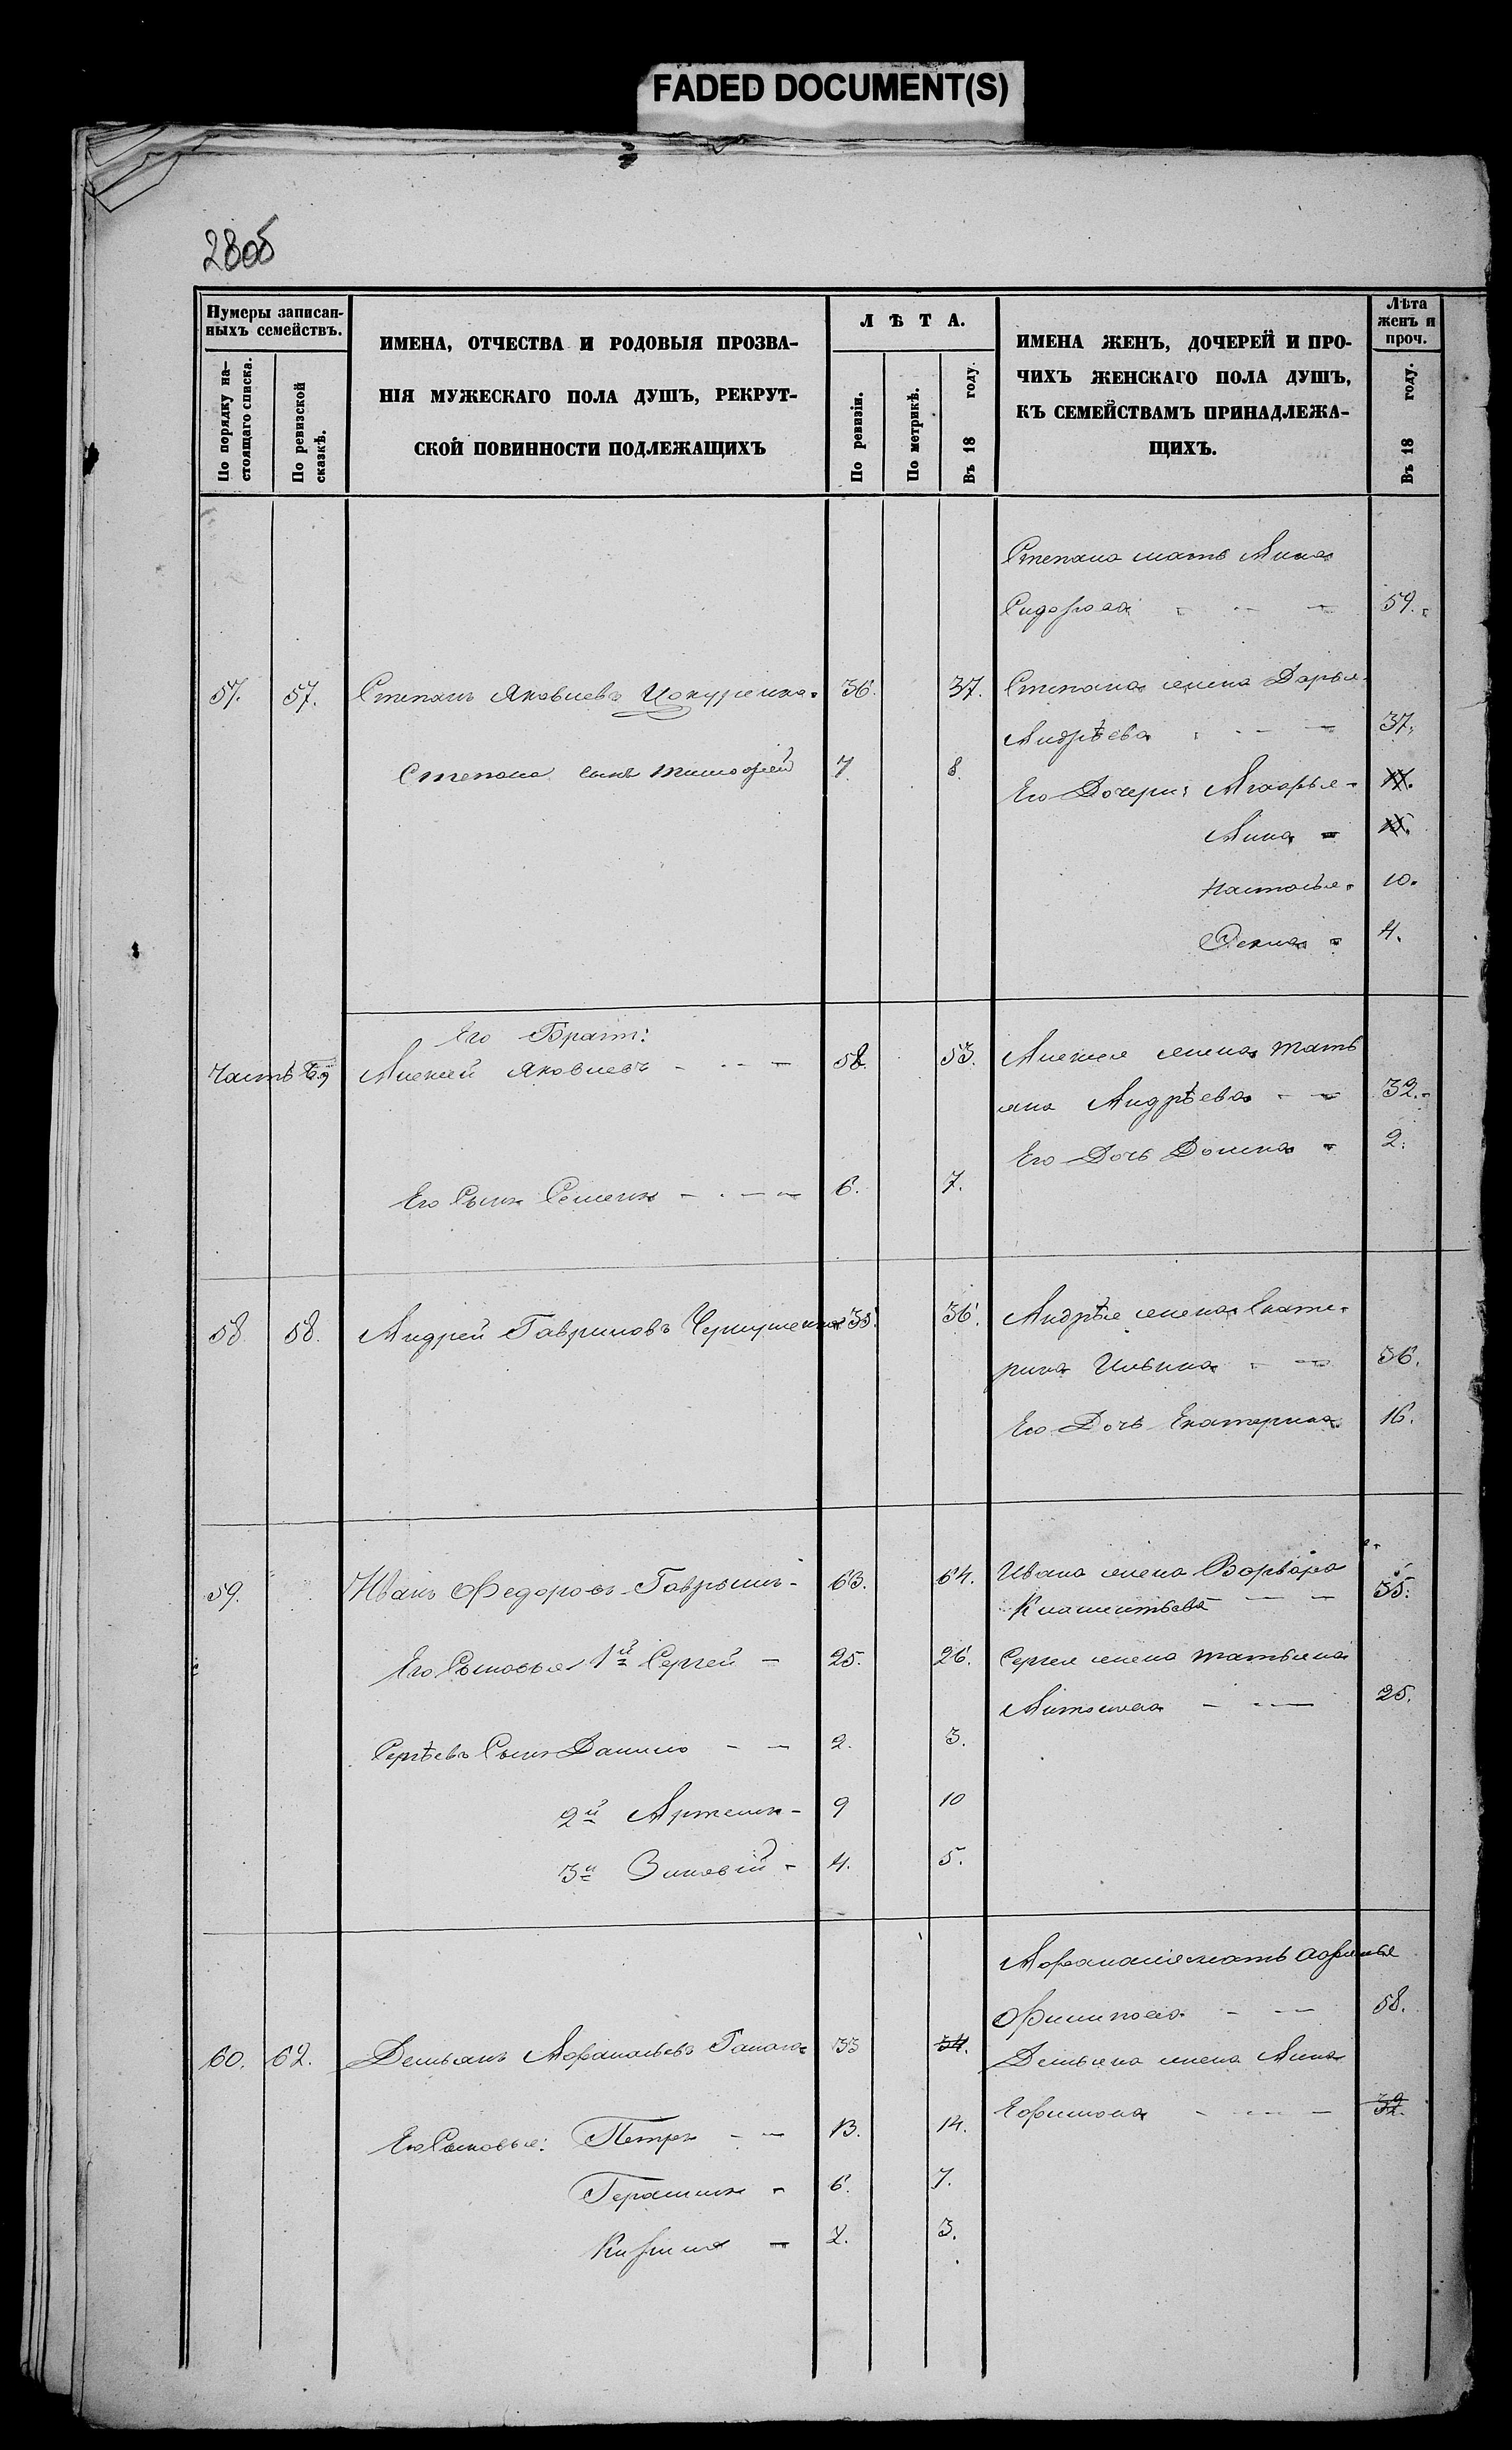 FADED DOCUMENT(S)
28об
Нумеры записан-
ныхъ семействъ.
По порядку на-
стоящаго списка.
По ревизской
сказкѣ.
ИМЕНА, ОТЧЕСТВА И РОДОВЫЯ ПРОЗВА-
НІЯ МУЖЕСКАГО ПОЛА ДУШЪ, РЕКРУТ-
СКОЙ ПОВИННОСТИ ПОДЛЕЖАЩИХЪ
ЛѢТА.
По ревизіи.
По метрикѣ.
Въ 18 году.
ИМЕНА ЖЕНЪ, ДОЧЕРЕЙ И ПРО-
ЧИХЪ ЖЕНСКАГО ПОЛА ДУШЪ,
КЪ СЕМЕЙСТВАМЪ ПРИНАДЛЕЖА-
ЩИХЪ.
Лѣта
женъ и
проч.
Въ 18 году.
Степана мать Анна
Сидорова 59.
57. 57. Степанъ Яковлевъ 36. 37. Степана жена Дарья
Андрѣева 37.
Степана сынъ Тимофей 7. 8.
Его Дочери: Агафья
Анна
Настасья 10.
4.
Его Братъ:
Часть Алексѣй Яковлевъ 52. 53. Алексея жена Тать
яна Андрѣева 32.
Его Дочь Домна 2.
Его Сынъ Семенъ 6. 7.
58. 58. Андрей Гавриловъ 35. 36. Андрѣя жена Екате-
рина Ильина 36.
Его Дочь Екатерина 16.
59. Иванъ Федоровъ Гаврышъ 63. 64. Ивана жена Варвара
Климентьева 55.
Его Сыновья 1й Сергей 25. 26. Сергея жена Татьяна
Антонова 25.
Сергѣевъ Сынъ Данило 2. 3.
2й Артемъ 9 10
3й Зиновій 4. 5.
Афанасія мать Аофимья
Филипова 58.
60. 62. Демьянъ Афанасьевъ Гапона 33 34. Демьяна жена Анна
Ефимова 32.
Его Сыновья: Петръ 13. 14.
Герасимъ 6. 7.
Кирило 2. 3.